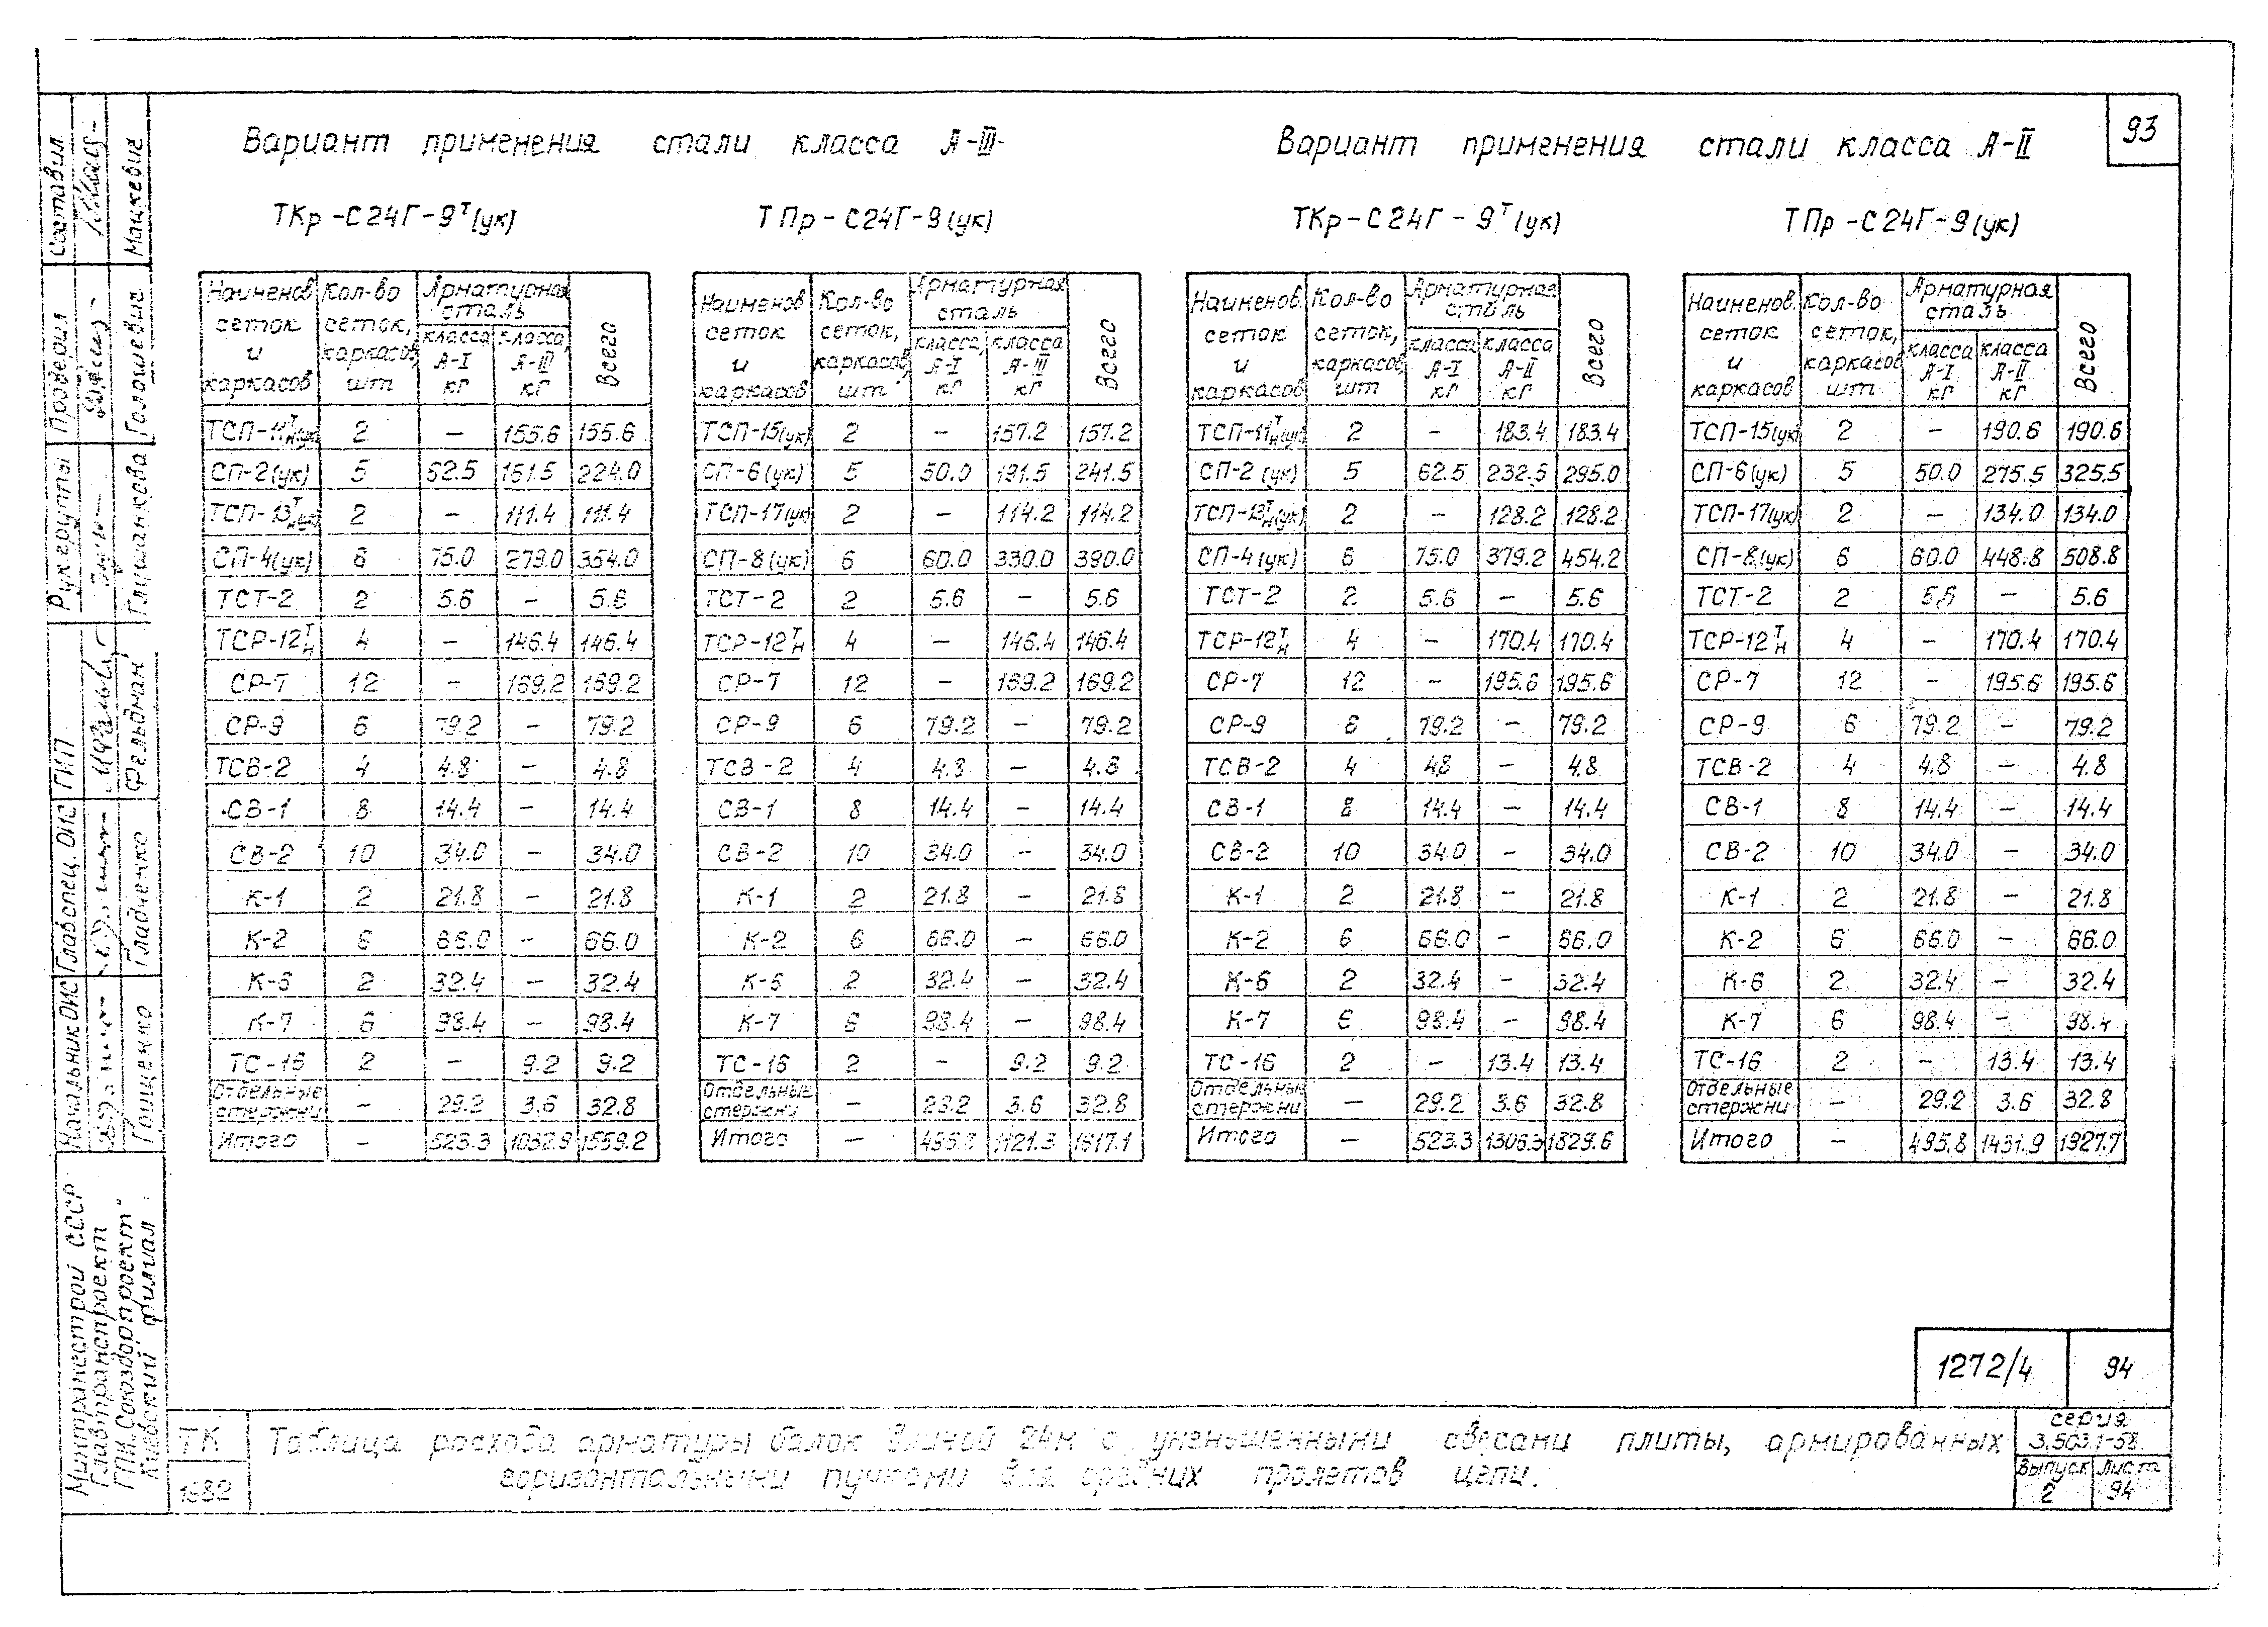 93
Вариант применения стали класса А-III
Вариант применения стали класса А-II
ТКр-С24Г-9ᵀ(ук)
Наименов. сеток и каркасов | Кол-во сеток, каркасов, шт | Арматурная сталь класса А-I кГ | класса А-III кГ | Всего
ТСП-11ᵀн(ук) 2 – 155.6 155.6
СП-2(ук) 5 62.5 161.5 224.0
ТСП-13ᵀн(ук) 2 – 111.4 111.4
СП-4(ук) 6 75.0 279.0 354.0
ТСТ-2 2 5.6 – 5.6
ТСР-12ᵀн 4 – 146.4 146.4
СР-7 12 – 169.2 169.2
СР-9 6 79.2 – 79.2
ТСВ-2 4 4.8 – 4.8
СВ-1 8 14.4 – 14.4
СВ-2 10 34.0 – 34.0
К-1 2 21.8 – 21.8
К-2 6 66.0 – 66.0
К-6 2 32.4 – 32.4
К-7 6 98.4 – 98.4
ТС-16 2 – 9.2 9.2
Отдельные стержни – 29.2 3.6 32.8
Итого – 523.3 1559.2
ТПр-С24Г-9(ук)
Наименов. сеток и каркасов | Кол-во сеток, каркасов, шт | Арматурная сталь класса А-I кГ | класса А-III кГ | Всего
ТСП-15(ук) 2 – 157.2 157.2
СП-6(ук) 5 50.0 191.5 241.5
ТСП-17(ук) 2 – 114.2 114.2
СП-8(ук) 6 60.0 330.0 390.0
ТСТ-2 2 5.6 – 5.6
ТСР-12ᵀн 4 – 146.4 146.4
СР-7 12 – 169.2 169.2
СР-9 6 79.2 – 79.2
ТСВ-2 4 4.8 – 4.8
СВ-1 8 14.4 – 14.4
СВ-2 10 34.0 – 34.0
К-1 2 21.8 – 21.8
К-2 6 66.0 – 66.0
К-6 2 32.4 – 32.4
К-7 6 98.4 – 98.4
ТС-16 2 – 9.2 9.2
Отдельные стержни – 29.2 3.6 32.8
Итого – 495.8 1121.3 1617.1
ТКр-С24Г-9ᵀ(ук)
Наименов. сеток и каркасов | Кол-во сеток, каркасов шт | Арматурная сталь класса А-I кГ | класса А-II кГ | Всего
ТСП-11ᵀн(ук) 2 – 183.4 183.4
СП-2(ук) 5 62.5 232.5 295.0
ТСП-13ᵀн(ук) 2 – 128.2 128.2
СП-4(ук) 6 75.0 379.2 454.2
ТСТ-2 2 5.6 – 5.6
ТСР-12ᵀн 4 – 170.4 170.4
СР-7 12 – 195.6 195.6
СР-9 6 79.2 – 79.2
ТСВ-2 4 4.8 – 4.8
СВ-1 8 14.4 – 14.4
СВ-2 10 34.0 – 34.0
К-1 2 21.8 – 21.8
К-2 6 66.0 – 66.0
К-6 2 32.4 – 32.4
К-7 6 98.4 – 98.4
ТС-16 2 – 13.4 13.4
Отдельные стержни – 29.2 3.6 32.8
Итого – 523.3 1306.3 1829.6
ТПр-С24Г-9(ук)
Наименов. сеток и каркасов | Кол-во сеток, каркасов шт | Арматурная сталь класса А-I кГ | класса А-II кГ | Всего
ТСП-15(ук) 2 – 190.6 190.6
СП-6(ук) 5 50.0 275.5 325.5
ТСП-17(ук) 2 – 134.0 134.0
СП-8(ук) 6 60.0 448.8 508.8
ТСТ-2 2 5.6 – 5.6
ТСР-12ᵀн 4 – 170.4 170.4
СР-7 12 – 195.6 195.6
СР-9 6 79.2 – 79.2
ТСВ-2 4 4.8 – 4.8
СВ-1 8 14.4 – 14.4
СВ-2 10 34.0 – 34.0
К-1 2 21.8 – 21.8
К-2 6 66.0 – 66.0
К-6 2 32.4 – 32.4
К-7 6 98.4 – 98.4
ТС-16 2 – 13.4 13.4
Отдельные стержни – 29.2 3.6 32.8
Итого – 495.8 1431.9 1927.7
1272/4 94
ТК 1982
Таблица расхода арматуры балок длиной 24м с уменьшенными свесами плиты, армированных
горизонтальными пучками для средних пролетов цепи.
серия
3.503.1-58
Выпуск 2
Лист 94
Минтрансстрой СССР
Главтранспроект
ГПИ „Союздорпроект"
Киевский филиал
Начальник ОИС Грищенко
Глав спец. ОИС Гладченко
ГИП Фельдман
Рук группы Глишанкова
Проверил Голошевич
Составил Мацкевич